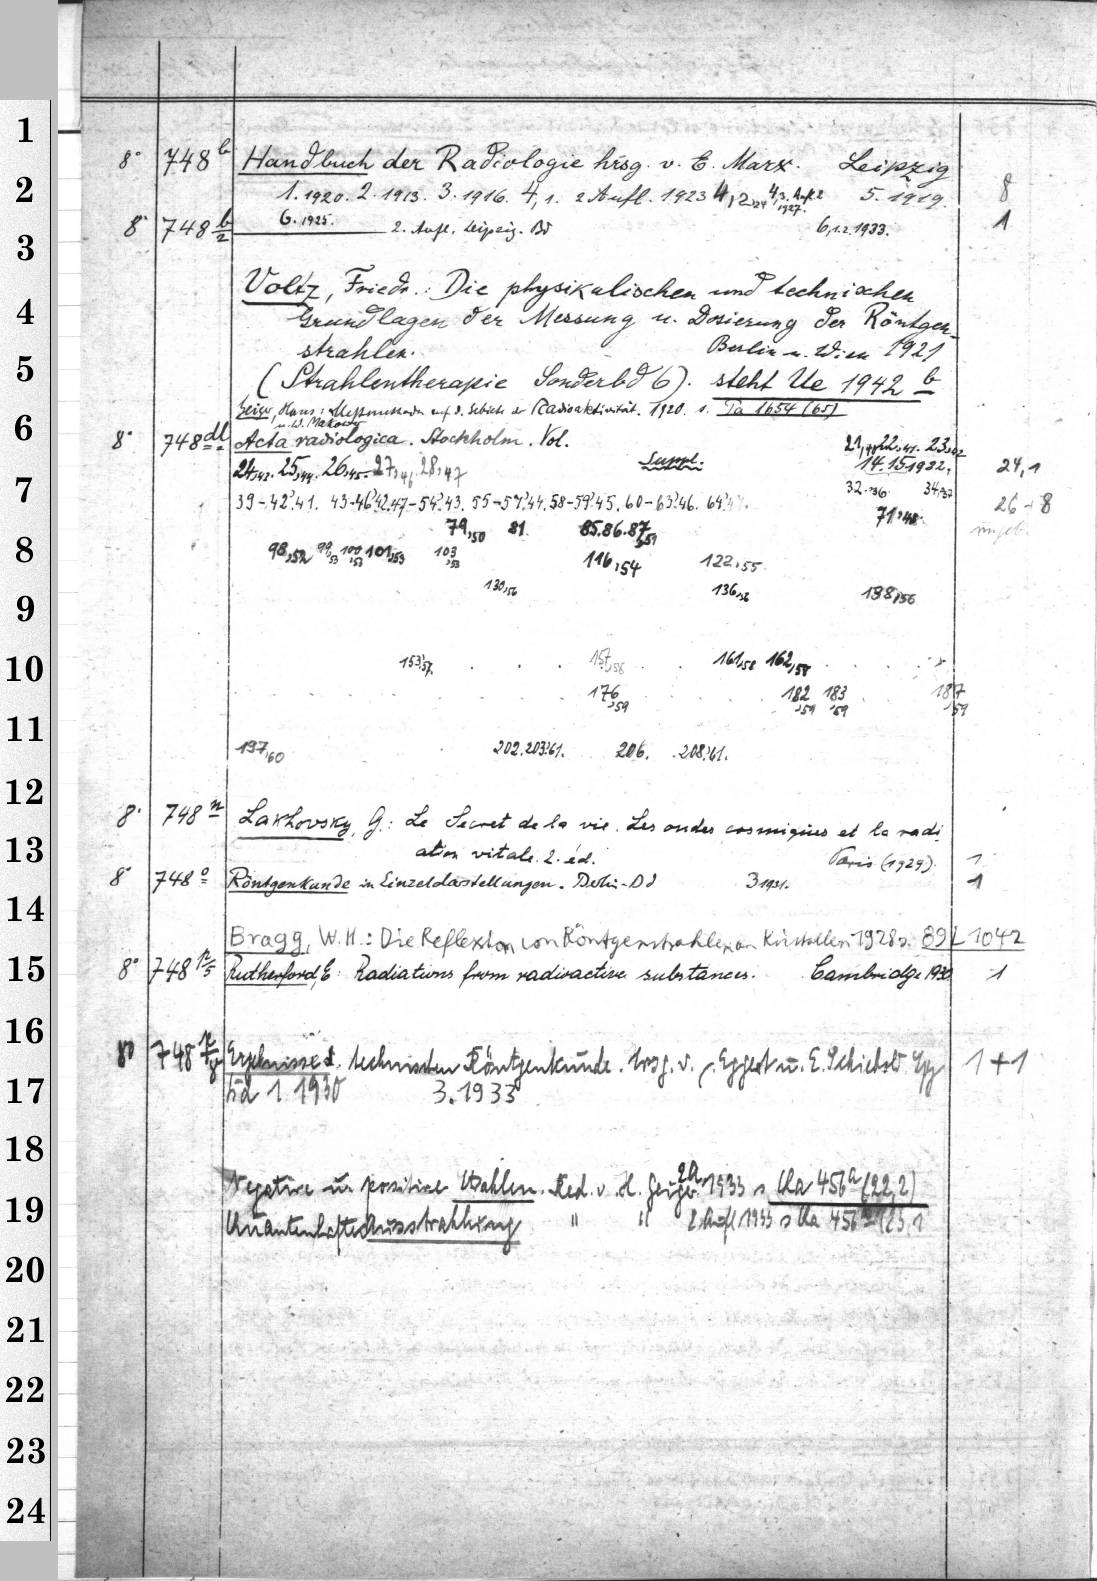 1
8° 748 b Handbuch der Radiologie hrsg. v. E. Marx. Leipzig
2
1. 1920. 2. 1913. 3. 1916. 4,1. 2 Aufl. 1923 4,2,24 4,3. Aufl. 2 1927. 5. 1919. 8
8° 748 b/2 6. 1925. 2. Aufl. Leipzig. Bd 6,1.2. 1933. 1
3
Voltz, Friedr.: Die physikalischen und technischen
4
Grundlagen der Messung u. Dosierung der Röntgen-
strahlen. Berlin u. Wien 1921
5
(Strahlentherapie Sonderbd 6). steht Ue 1942 b
Geiger, Hans: Messmethoden auf d. Gebiete der Radioaktivität. 1920. s. Ta 1654 (65)
u. W. Makower
6
8° 748 dl Acta radiologica. Stockholm. Vol. 21,40 22,41. 23,42
24,43. 25,44. 26,45. 27,46. 28,47 Suppl. 14.15 1932. 24,1
7
39-42'41. 43-46'42. 47-54'43. 55-57'44. 58-59'45. 60-63'46. 64'47. 32.'36. 34,'37 26 + 8
79,50 81. 85.86.87,51 71,'48.
8
98,52 99,53 100,53 101,53 103,53 116,54 122,55
130,56 136,56 138,56
9
10
153'57. 157,58 161,58 162,58
176,59 182,59 183,59 187,59
11
197,60 202.203'61. 206. 208,'61.
12
8° 748 n Lakhovsky, G.: Le Secret de la vie. Les ondes cosmiques et la radi
13
ation vitale. 2. éd. Paris (1929). 1
8° 748 o Röntgenkunde in Einzeldarstellungen. Berlin. Bd 3 1931. 1
14
Bragg, W.H.: Die Reflexion von Röntgenstrahlen an Kristallen 1928 s. 89 L 1042
15
8° 748 p/5 Rutherford, E: Radiations from radioactive substances. Cambridge 1930. 1
16
8° 748 Ergebnisse d. technischen Röntgenkunde. hrsg. v. J. Eggert u. E. Schiebold Lpz 1 + 1
17
Bd 1. 1930 3. 1933
18
Negative u. positive Strahlen. Red. v. H. Geiger. 2A. 1933 s Ua 456 a (22,2)
19
Quantenhafte Ausstrahlung " " 2 Aufl 1933 s Ua 456 a (23,1
20
21
22
23
24